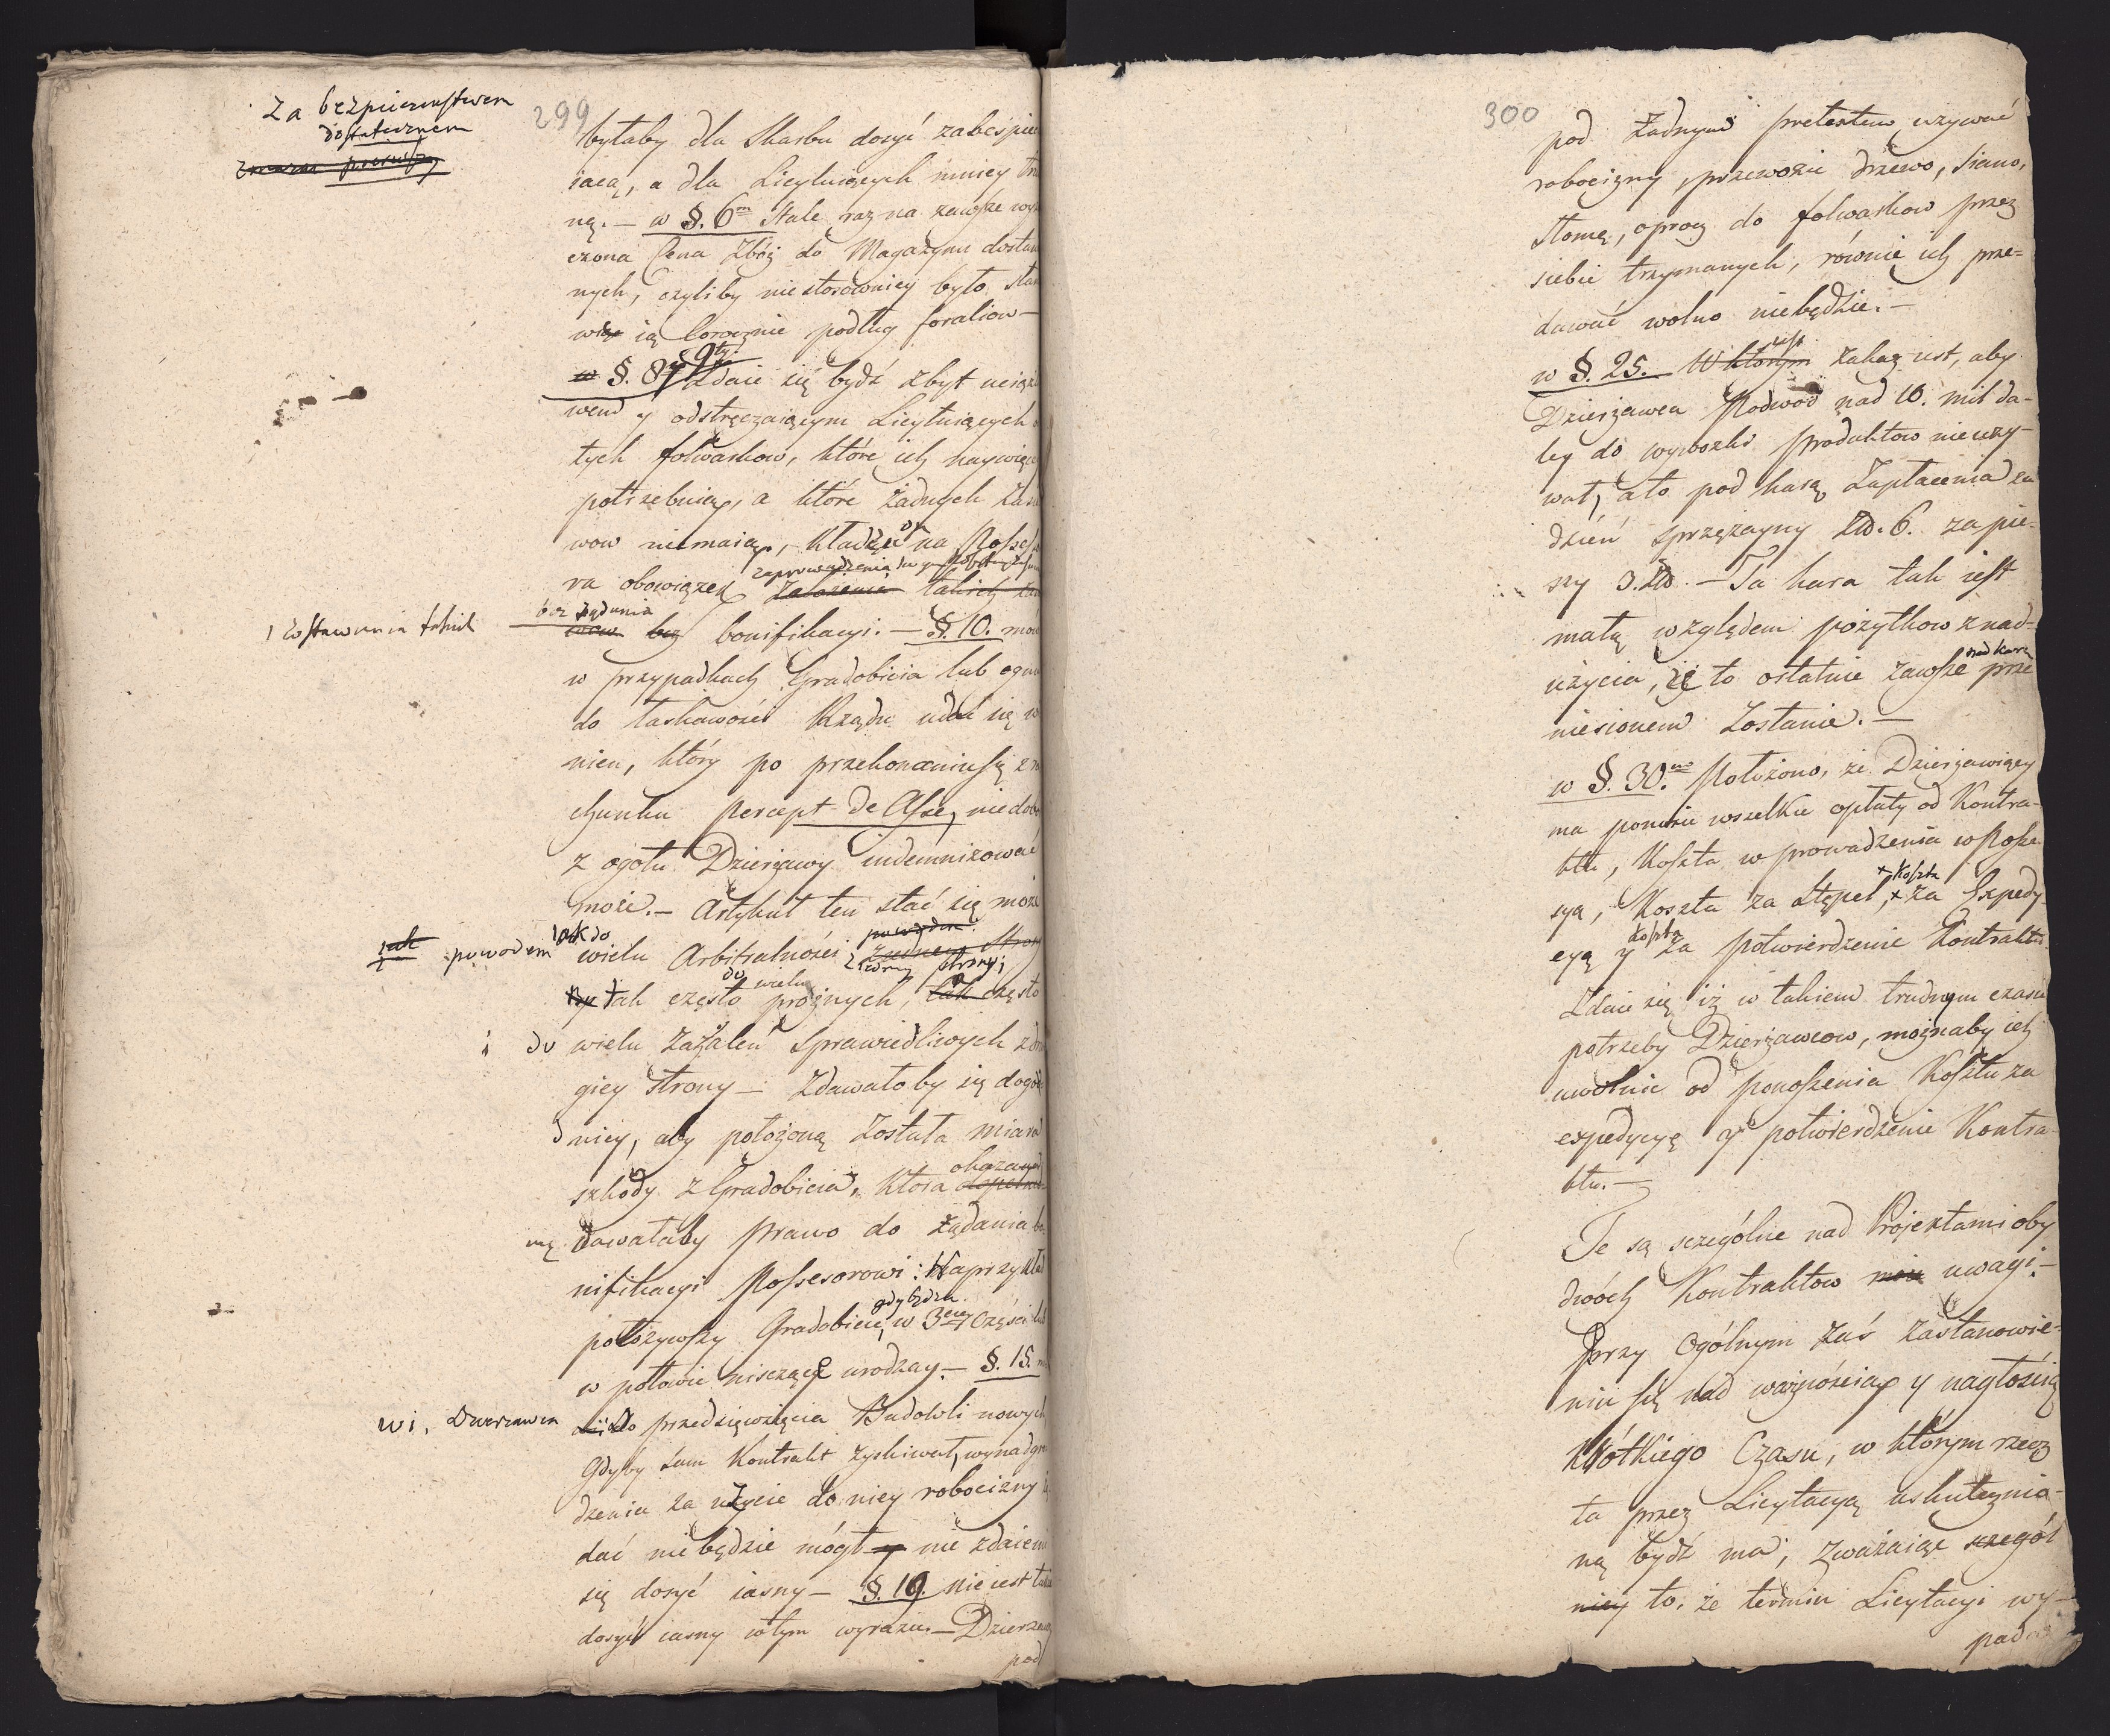 299
Za bezpieczenstwem
dostatecznem
byłaby dla Skarbu dosyć zabespie
iącą, a dla Licytuiących mniey
ną. — w §. 6m Stale raz na zawsze
czona Cena Zbóż do Magazynu dostaw
nych, czyliby niestosowniey było
ią Corocznie podług foraliow —
w §. 8 9ty. Zdaie się bydź zbyt uciążli
wem y odstręczaiącym Licytuiących
tych folwarkow, które ich naywięcey
potrzebuią, a które żadnych
wow niemaią, kładzie on na Posses
ra obowiązek zaprowadzenia założenia takich
i zostawienia takich
bez żądania
bez bonifikacyi. — §. 10.
w przypadkach Gradobicia lub ognia
do łaskawości Rządu udać się
nien, który po przekonaniu się z
chunku percept de Asse, niedob
z ogołu Dzierżawy indemnizować
może. — Artykuł ten stać się może
jak powodem iak do wielu Arbitralności powodem żadney
z iedney strony i
tak często do wielu prożnych, tak często
i do wielu zażaleń sprawiedliwych z dru
giey strony — Zdawałoby się dogo
dniey, aby położoną została miara
szkody z Gradobicia, która okazana
dawałaby prawo do żądania bo
nifikacyi Possesorowi: Naprzykład
położywszy Gradobicie, gdy będzie w 3ciey Części lub
w połowie nisczące urodzay — §. 15.
wi, Dzierzawca
do przedsięwzięcia Budowli nowych
Gdyby sam Kontrakt zyskiwał, wynadgro
dzenia za użycie do niey robocizny
dać nie będzie mógł y nie zdaie
się dosyć iasny — §. 19. nie iest
dosyć iasny w tym wyrazie — Dzierzaw
pod
300
pod żadnym pretextem używać
robocizny, przewozić drzewo, Siano,
słomę, oprocz do folwarkow przez
siebie trzymanych, równie ich prze-
dawać wolno niebędzie. —
w §. 25. W którym iest zakaz iest, aby
Dzierżawca Podwod nad 10. mil da-
ley do wywozki produktow nieuży-
wał, a to pod karą Zapłacenia za
dzień sprzężayny Zło. 6. za pie-
szy 3. Zło. — Ta kara tak iest
małą względem pożytkow z nad-
użycia, iż to ostatnie zawsze nad karę prze
niesionem zostanie. —
w §. 30.mo Położono, że Dzierżawiący
ma ponosić wszelkie opłaty od Kontra-
ktu, Koszta wprowadzenia w Posse
syą, Koszta za Stępel, + Koszta + za Expedy-
cyą y Koszta za potwierdzenie Kontraktu.
Zdaie się iż w takiem trudnym czasie
potrzeby Dzierżawcow, możnaby ich
uwolnić od ponoszenia Kosztu za
expedycyę y potwierdzenie Kontra-
ktu. —
Te są sczególne nad Projektami oby
dwóch Kontraktow moie uwagi. —
Przy Ogólnym zaś zastanowie-
niu się nad ważnością y nagłością
krótkiego Czasu, w którym rzecz
ta przez Licytacyą uskutecznia-
ną bydź ma, zważaiąc sczegól
niey to, że termin Licytacyi wy-
pada